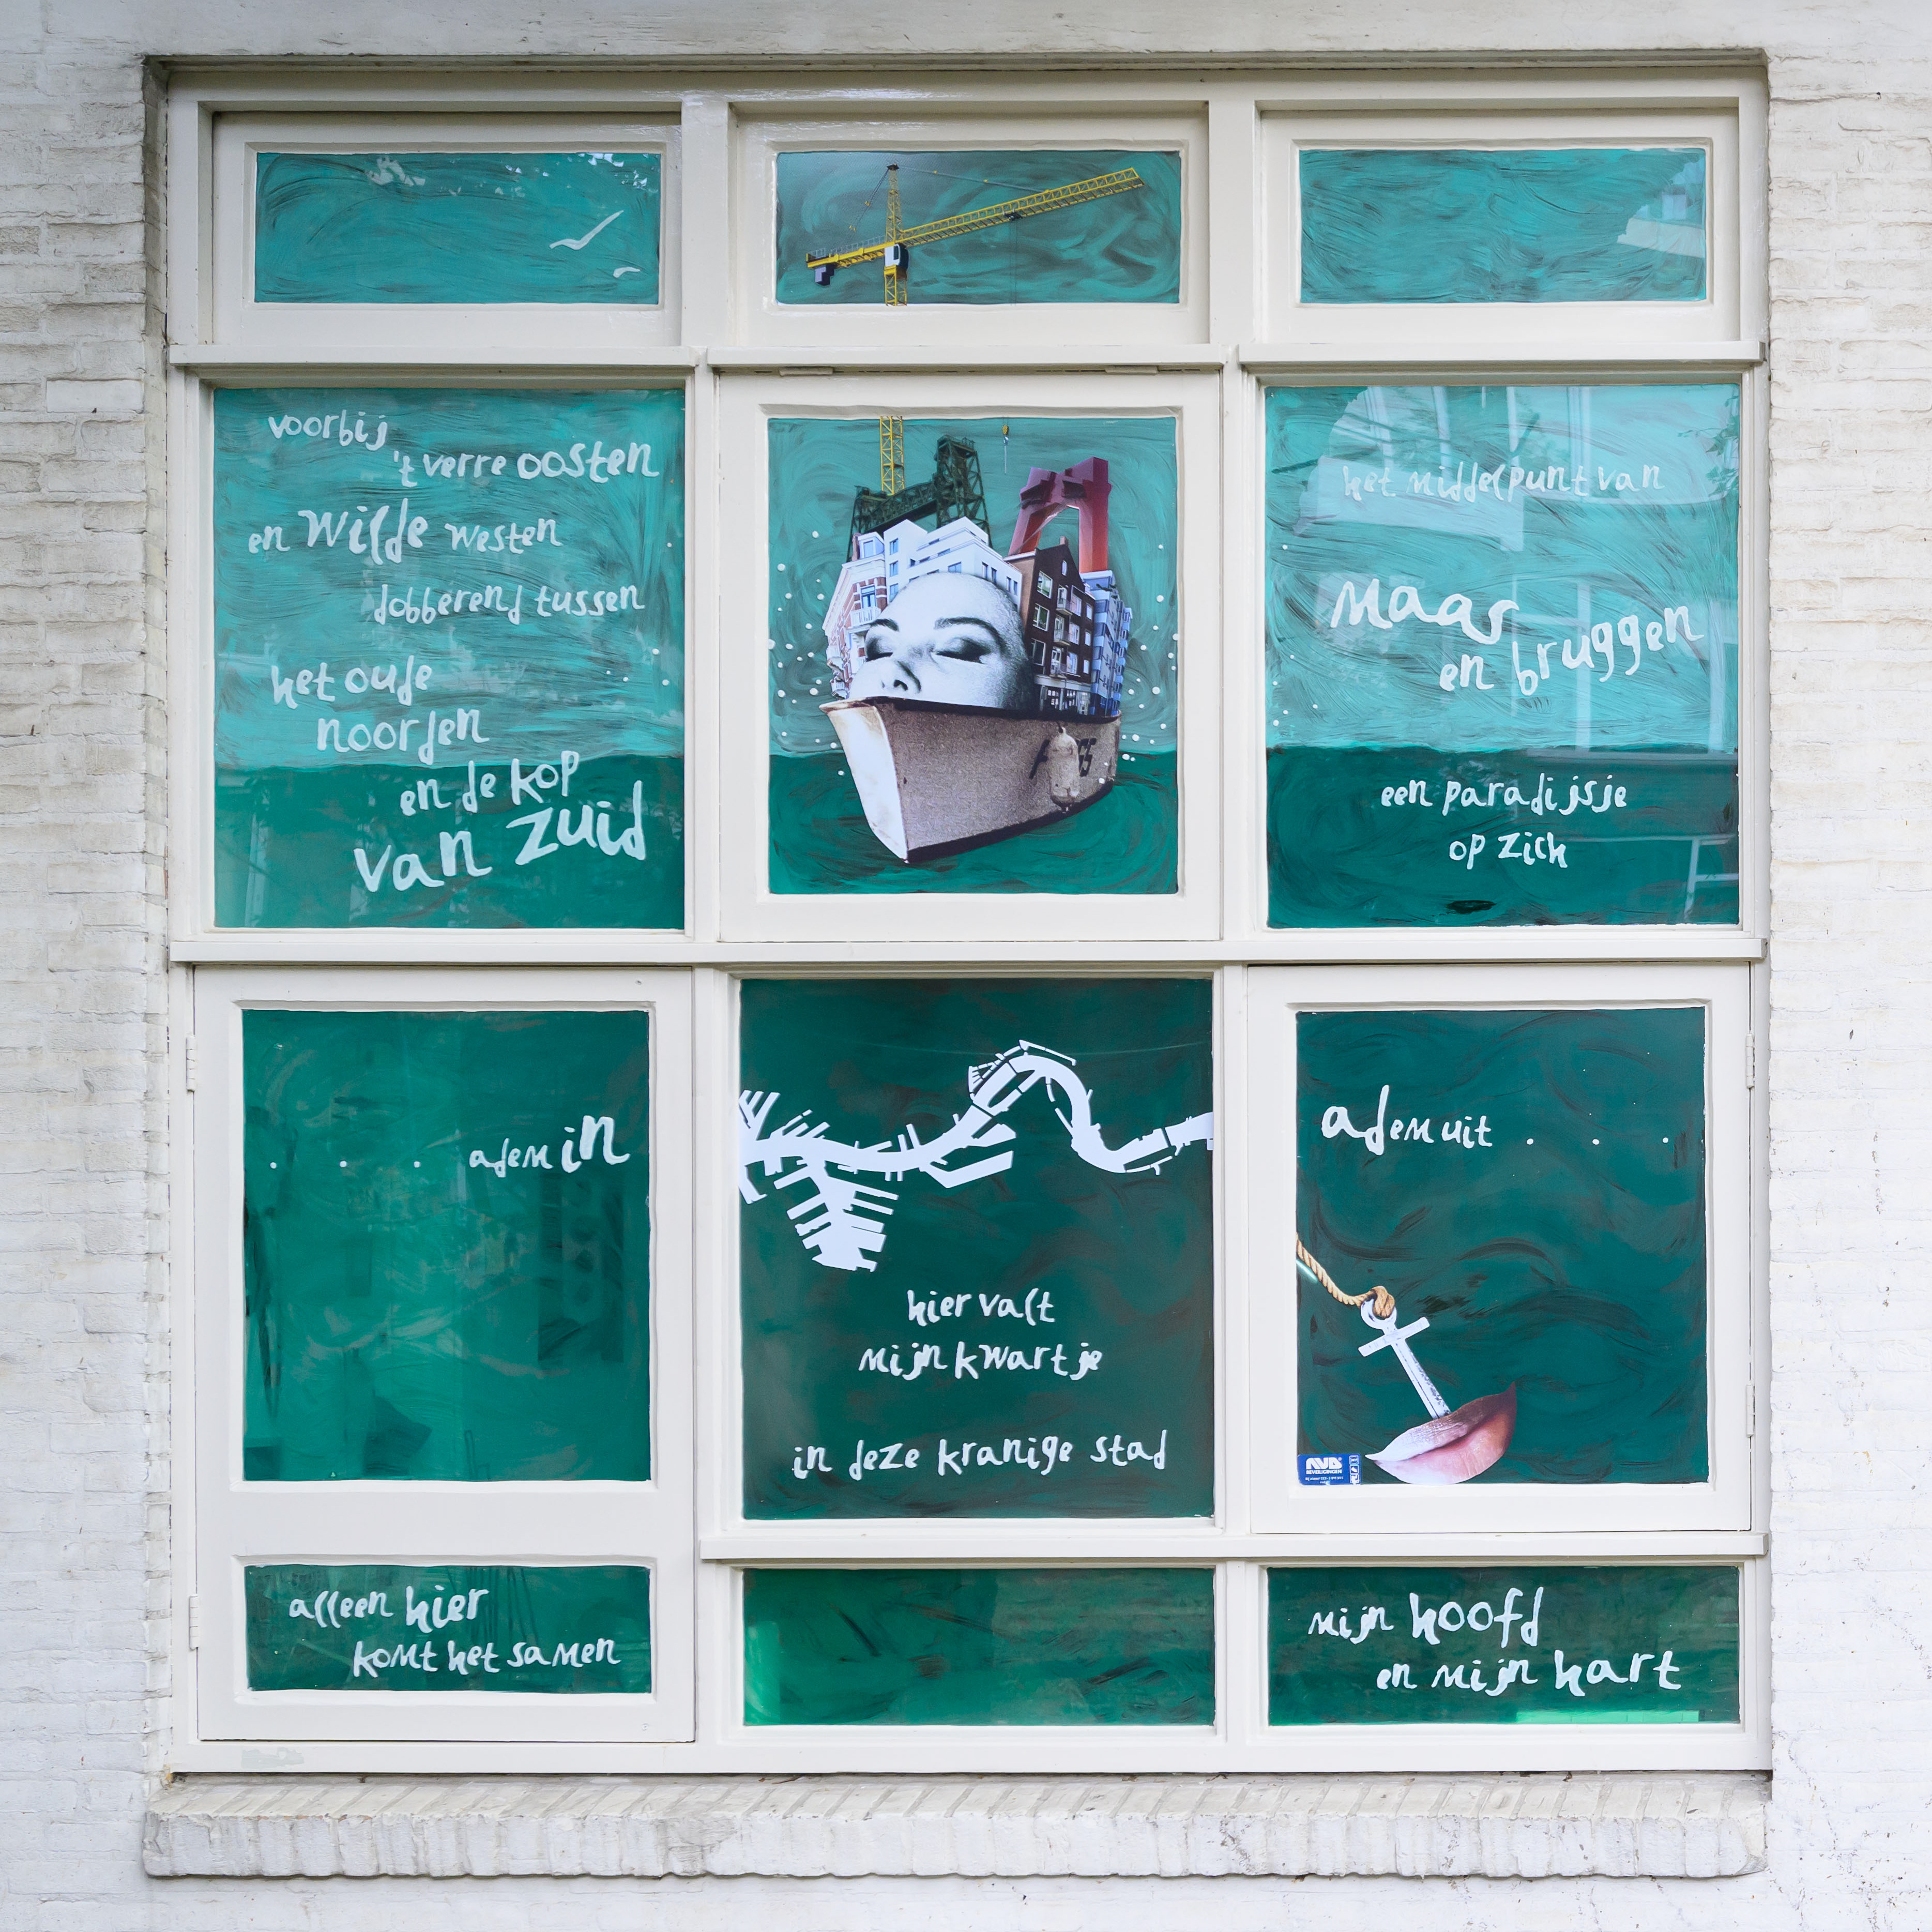 voorbij
't verre oosten
en wilde westen
dobberend tussen
het oude
noorden
en de kop
van zuid
het middelpunt van
Maas
en bruggen
een paradijsje
op zich
. . . adem in
hier valt
mijn kwartje
in deze kranige stad
adem uit . . .
AVB
BEVEILIGINGEN
alleen hier
komt het samen
mijn hoofd
en mijn hart